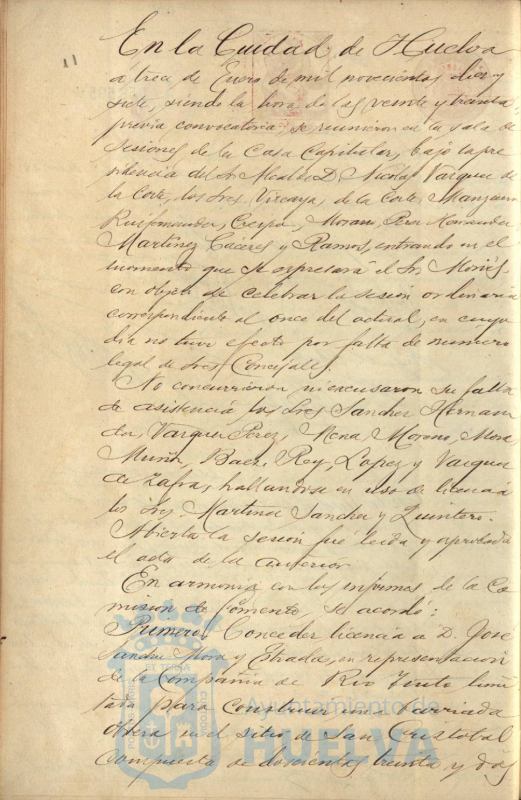 11
En la Cuidad de Huelva
a trece de Enero de mil novecientos diez y
siete, siendo la hora de las veinte y treinta
previa convocatoria se reunieron en la sala de
Sesiones de la Casa Capitular, bajo la pre
sidencia del Sr Alcalde D. Nicolas Vazquez de
la Corte, los Sres Vizcaya, de la Corte, Manzano
Ruifernandez, Crespo, Moreno, Pera Hernandez
Martinez Caceres y Ramos, entrando en el
momento que se expresará el Sr Moriés
con objeto de celebrar la sesión ordinaria
correspondiente al once del actual, en cuyo
dia no tuvo efecto por falta de numero
legal de Sres Concejales.
No concurrieron, ni excusaron su falta
de asistencia los Sres Sanchez Hernan
dez, Vazquez Perez, Mena, Moreno, Mora,
Muñoz, Baez, Rey, Lopez y Vazquez
de Zafra, hallandose en uso de licencia
los Sres Martinez Sanchez y Quintero.
Abierta la sesión fué leida y aprobada
el acta de la anterior.
En armonia con los informes de la Co
mision de Fomento, se acordó:
Primero. Conceder licencia a D. José
Sanchez Mora y Estrada, en representación
de la Compañia de Rio Tinto limi
tada para construir una barriada
obrera en el sitio de San Cristobal
compuesta de doscientas treinta y dos
Ayuntamiento de
HUELVA